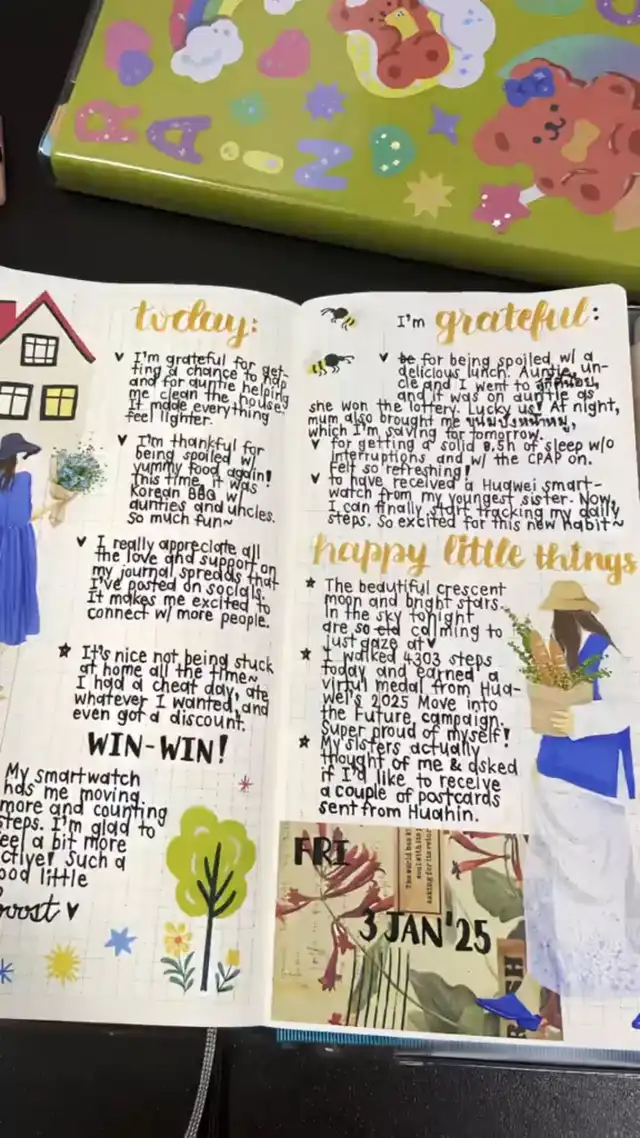 RAIN
today:
♥ I'm grateful for get-
ting a chance to nap
and for auntie helping
me clean the house!
It made everything
feel lighter.
♥ I'm thankful for
being spoiled w/
yummy food again!
This time, it was
Korean BBQ w/
aunties and uncles.
So much fun~
♥ I really appreciate all
the love and support on
my journal spreads that
I've posted on socials.
It makes me excited to
connect w/ more people.
★ It's nice not being stuck
at home all the time~
I had a cheat day, ate
whatever I wanted, and
even got a discount.
WIN-WIN!
My smartwatch
has me moving
more and counting
steps. I'm glad to
feel a bit more
active! Such a
good little
boost ♥
I'm grateful:
♥ be for being spoiled w/ a
delicious lunch. Auntie, un-
cle and I went to
and it was on auntie as
she won the lottery. Lucky us! At night,
mum also brought me ขนมปังหน้าหมู,
which I'm saving for tomorrow.
♥ for getting a solid 8.5h of sleep w/o
interruptions and w/ the CPAP on.
Felt so refreshing!
♥ to have received a Huawei smart-
watch from my youngest sister. Now,
I can finally start tracking my daily
steps. So excited for this new habit~
happy little things
★ The beautiful crescent
moon and bright stars
in the sky tonight
are so calming to
just gaze at ♥
★ I walked 4303 steps
today and earned a
virtual medal from Hua-
wei's 2025 Move into
the Future campaign.
Super proud of myself!
★ My sisters actually
thought of me & asked
if I'd like to receive
a couple of postcards
sent from Huahin.
FRI
3 JAN '25